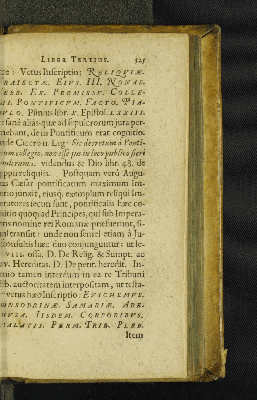 LIBER TERTIUS. 525
Vetus Inscriptio: RELIQUIÆ.
TRAIECTÆ. EIVS. III. NONAS.
FEBR. EX. PERMISSV. COLLE-
GII. PONTIFICVM. FACTO. PIA-
CVLO. Plinius libr. X. Epistol. LXXIII.
alias quæ ad sepulcrorum jura per-
tinebant, de iis Pontificum erat cognitio.
Cicero II. Leg. Sic decretum à Ponti-
cum collegio, non esse jus in loco publico fieri
sepulcrum. videndus & Dio libr. 48. de
Postquam verò Augu-
stus Cæsar pontificatum maximum Im-
perio junxit, ejusq; exemplum reliqui Im-
peratores secuti sunt, pontificalis hæc co-
gnitio quoq; ad Principes, qui sub Impera-
toris nomine rei Romanæ præfuerunt, si-
mul transiit: unde non semel etiam à Ju-
reconsultis hæc duo conjunguntur: ut le-
VIII. ossa. D. De Relig. & Sumpt. ac
XV. Hereditas. D. De petit. heredit. In-
terim tamen interdum in ea re Tribuni
Pleb. auctoritatem interpositam, ut testa-
tur vetus hæc Inscriptio: EVSCHEMVS.
SAMARIÆ.
IISDEM. CORPORIBVS.
PERM. TRIB. PLEB.
Item